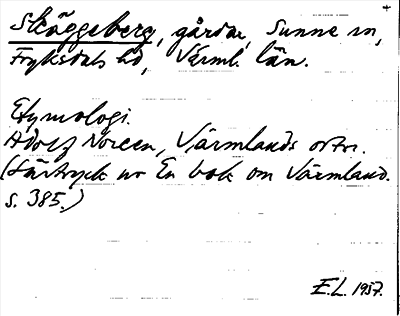 Skäggeberg, gårdar, Sunne sn,
Fryksdals hd, Värml. län.
Etymologi.
Adolf Noreen, Värmlands ortn.
(Särtryck ur En bok om Värmland.
s. 385.)
E.L. 1957.